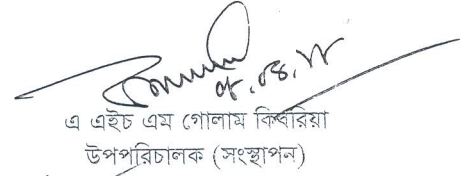 এ এইচ এম গোলাম কিবরিয়া
উপপরিচালক (সংস্থাপন)